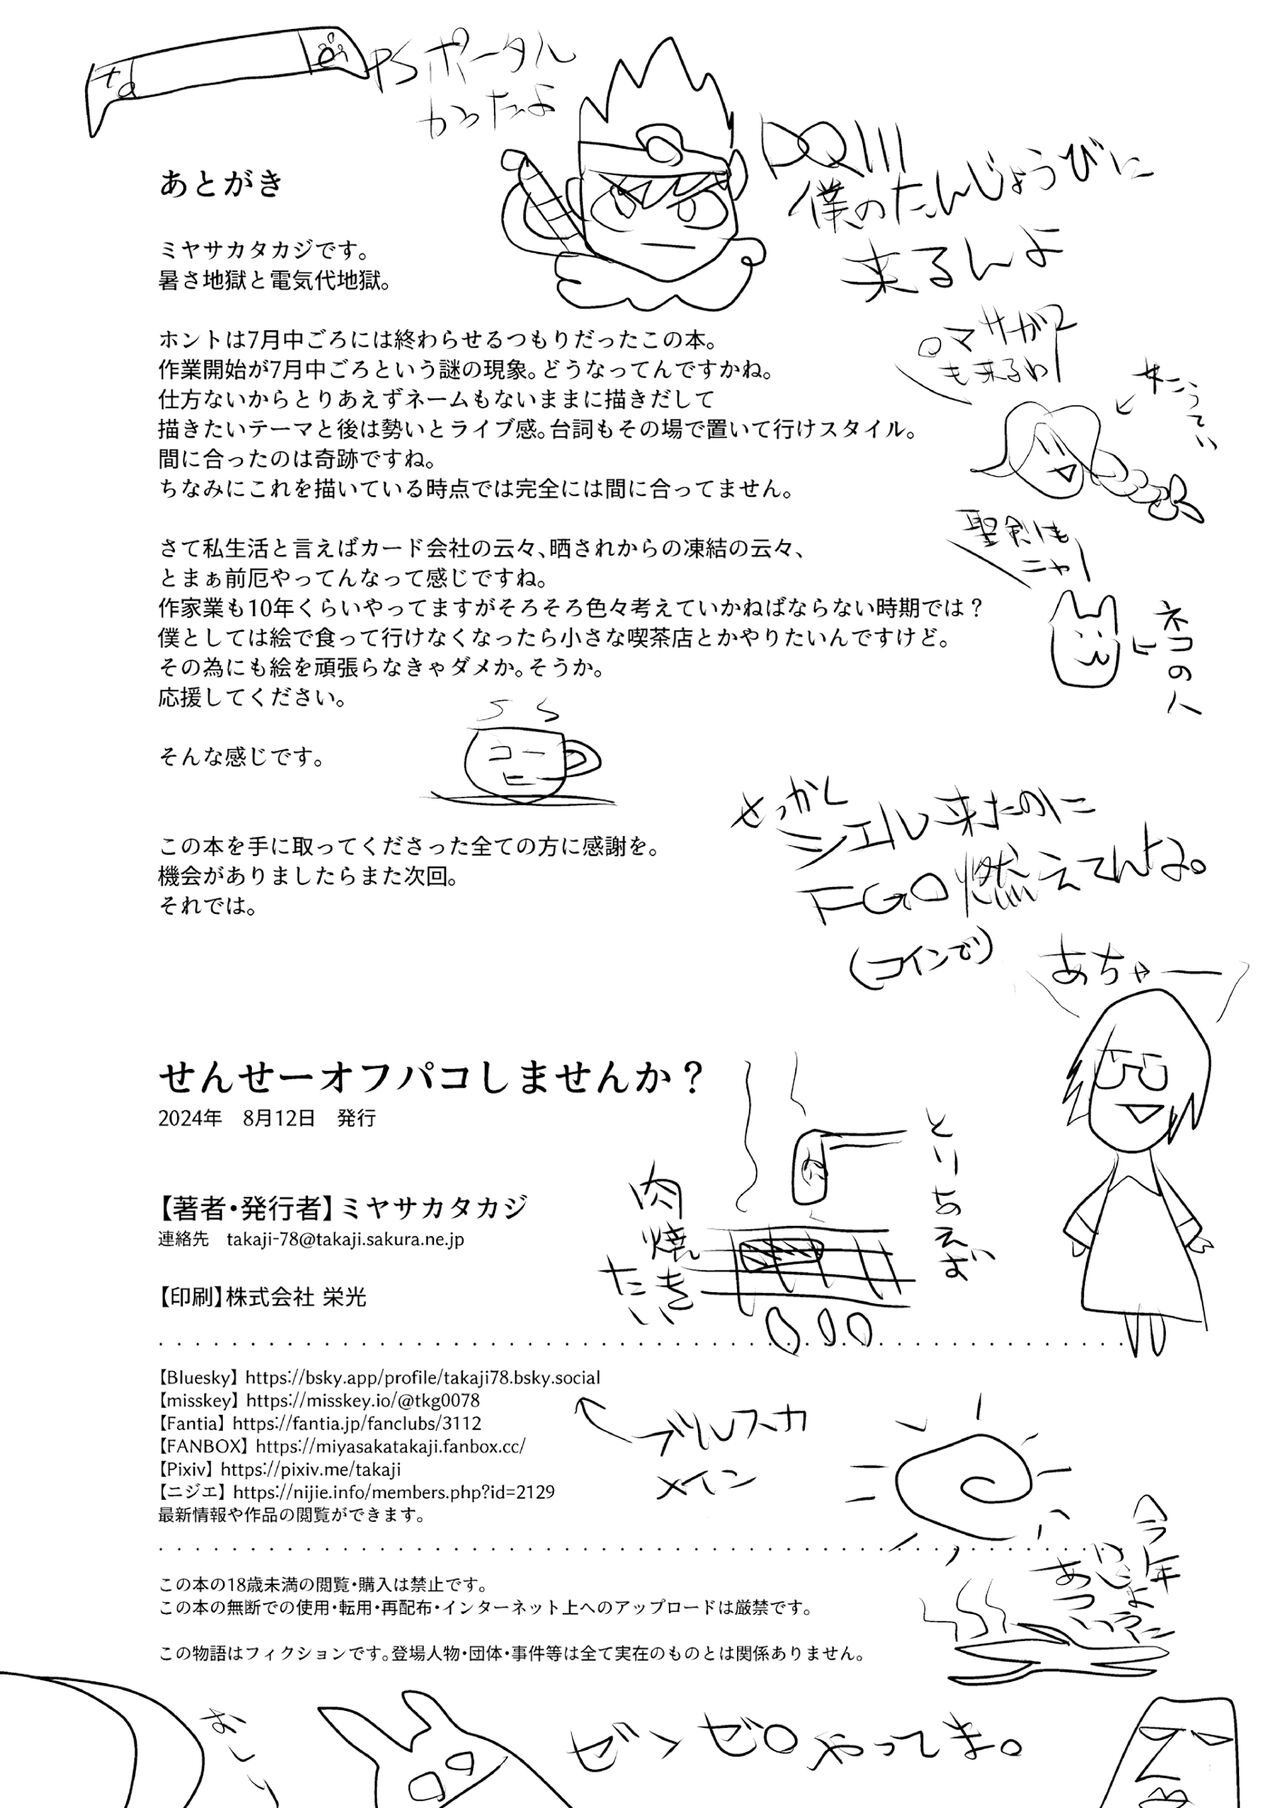 PSポータル
かったよ
DQIII
僕のたんじょうびに
来るんよ
あとがき
ミヤサカタカジです。
暑さ地獄と電気代地獄。
ロマサガ2
も来るわ
ホントは7月中ごろには終わらせるつもりだったこの本。
作業開始が7月中ごろという謎の現象。どうなってんですかね。
仕方ないからとりあえずネームもないままに描きだして
描きたいテーマと後は勢いとライブ感。台詞もその場で置いて行けスタイル。
間に合ったのは奇跡ですね。
ちなみにこれを描いている時点では完全には間に合ってません。
女こうてい
聖剣も
ニャ
さて私生活と言えばカード会社の云々、晒されからの凍結の云々、
とまぁ前厄やってんなって感じですね。
作家業も10年くらいやってますがそろそろ色々考えていかねばならない時期では？
僕としては絵で食って行けなくなったら小さな喫茶店とかやりたいんですけど。
その為にも絵を頑張らなきゃダメか。そうか。
応援してください。
ネコの人
そんな感じです。
コー
ヒー
せっかく
シエル来たのに
FGO燃えてんよ。
(コインで)
この本を手に取ってくださった全ての方に感謝を。
機会がありましたらまた次回。
それでは。
あちゃー
せんせーオフパコしませんか？
2024年　8月12日　発行
とりあえず
肉
焼き
たい
【著者・発行者】ミヤサカタカジ
連絡先　takaji-78@takaji.sakura.ne.jp
【印刷】株式会社 栄光
【Bluesky】https://bsky.app/profile/takaji78.bsky.social
【misskey】https://misskey.io/@tkg0078
【Fantia】https://fantia.jp/fanclubs/3112
【FANBOX】https://miyasakatakaji.fanbox.cc/
【Pixiv】https://pixiv.me/takaji
【ニジエ】https://nijie.info/members.php?id=2129
最新情報や作品の閲覧ができます。
ブルスカ
メイン
今年
いじょうに
あつい
この本の18歳未満の閲覧・購入は禁止です。
この本の無断での使用・転用・再配布・インターネット上へのアップロードは厳禁です。
この物語はフィクションです。登場人物・団体・事件等は全て実在のものとは関係ありません。
おしり
ゼンゼロやってま。